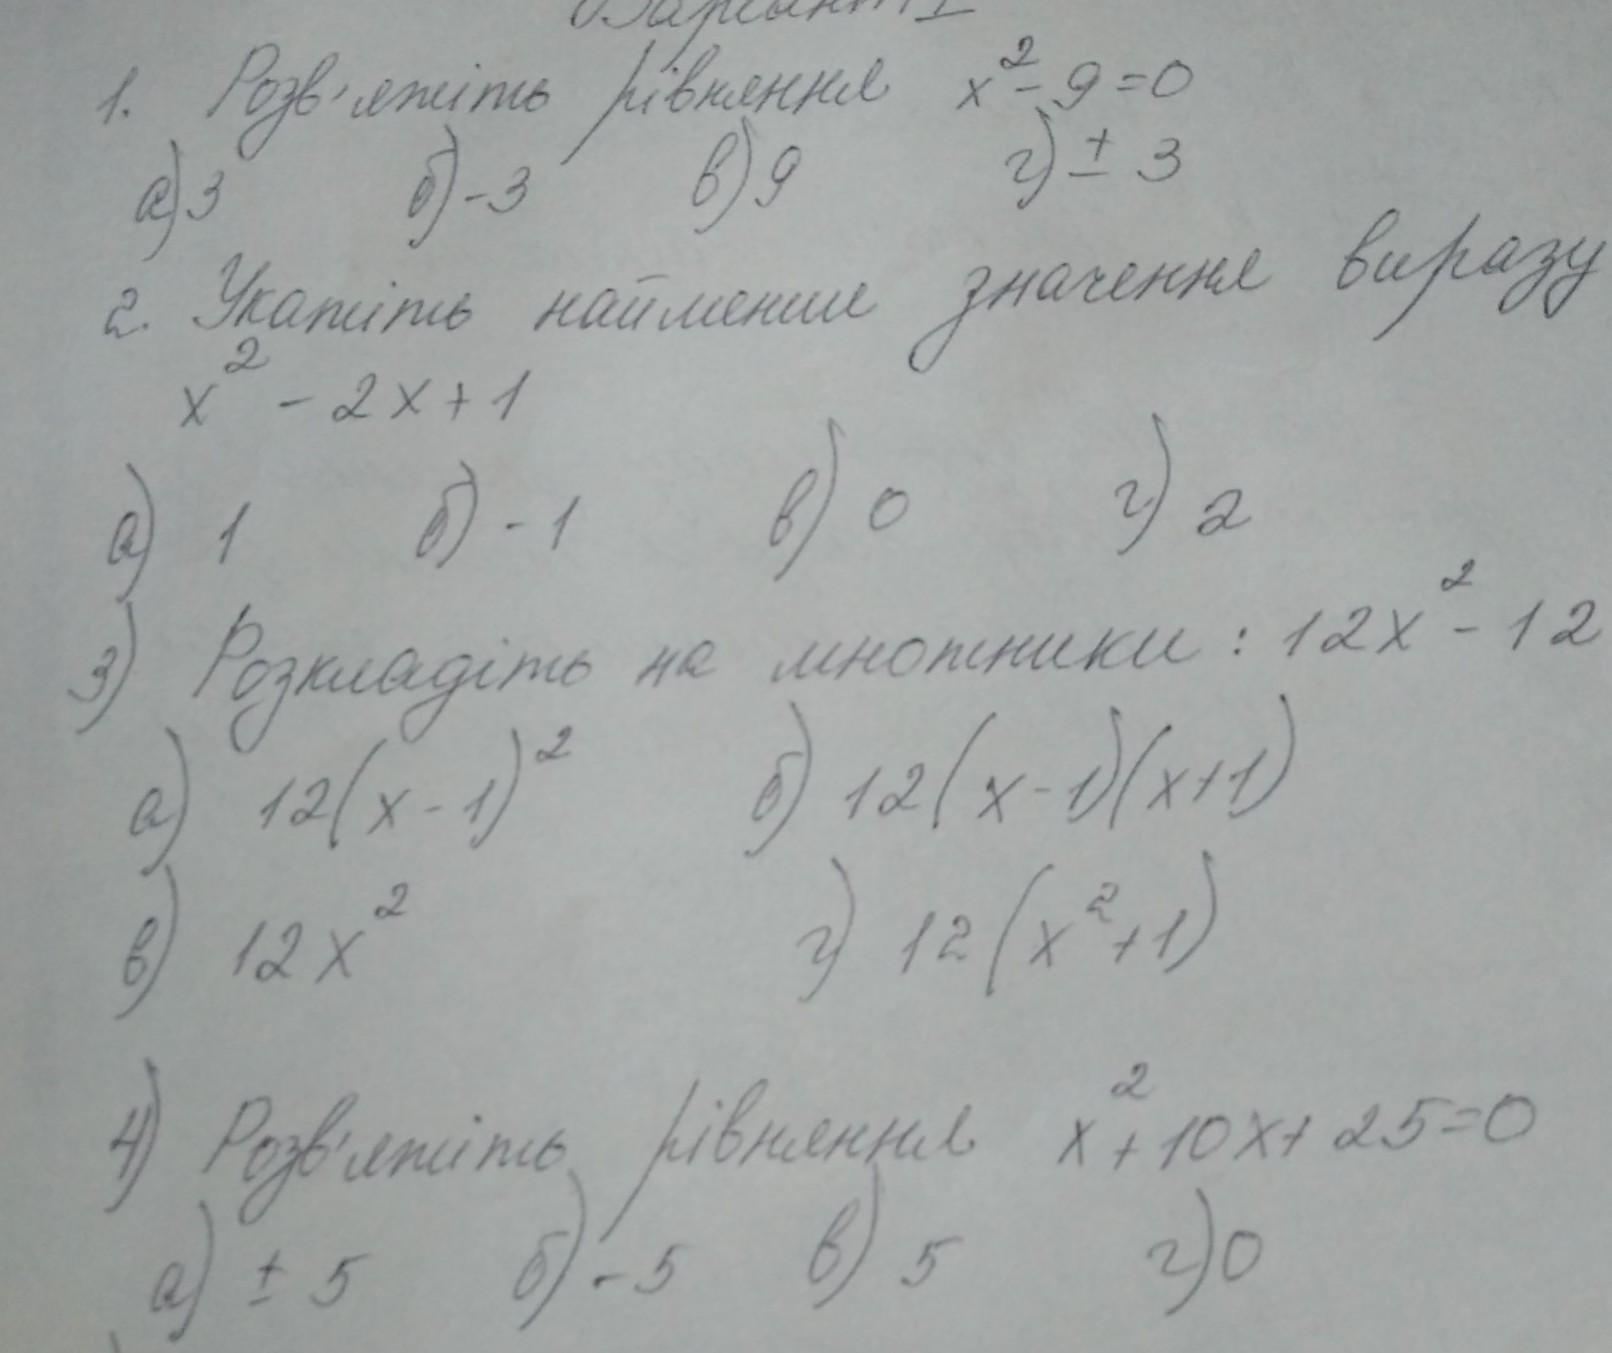 Варіант I
1. Розв'яжіть рівняння x² - 9 = 0
а) 3 б) -3 в) 9 г) ± 3
2. Укажіть найменше значення виразу
x² - 2x + 1
а) 1 б) -1 в) 0 г) 2
3) Розкладіть на множники : 12x² - 12
а) 12(x - 1)² б) 12(x - 1)(x + 1)
в) 12x² г) 12(x² + 1)
4) Розв'яжіть рівняння x² + 10x + 25 = 0
а) ± 5 б) -5 в) 5 г) 0